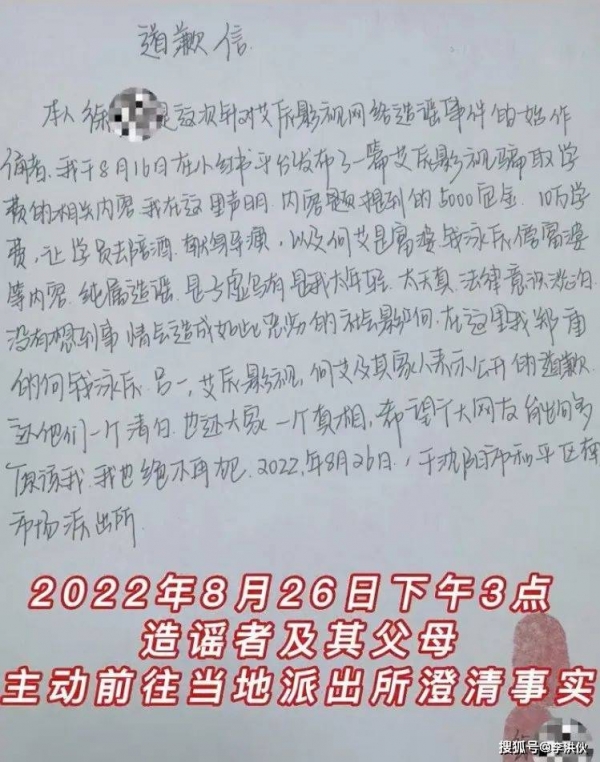 道歉信
本人徐 是这次针对艾辰影视网络造谣事件的始作
俑者.我于8月16日在小红书平台发布了一篇艾辰影视骗取学
费的相关内容.我在这里声明.内容题提到的5000定金. 10万学
费,让学员去陪酒.献身导演, 以及何艾是富婆 钱泳辰傍富婆
等内容. 纯属造谣. 是子虚乌有是我太年轻. 太天真.法律意识淡泊.
没有想到事情会造成如此恶劣的社会影响.在这里我郑重
的向钱泳辰.吕一,艾辰影视,何艾及其家人表示公开的道歉.
还他们一个清白.也还大家一个真相,希望广大网友
原谅我.我也绝不再犯. 2022,年8月26日,于沈阳市和平区南
市场派出所.
2022年8月26日下午3点
造谣者及其父母
主动前往当地派出所澄清事实
搜狐号@李洪伙